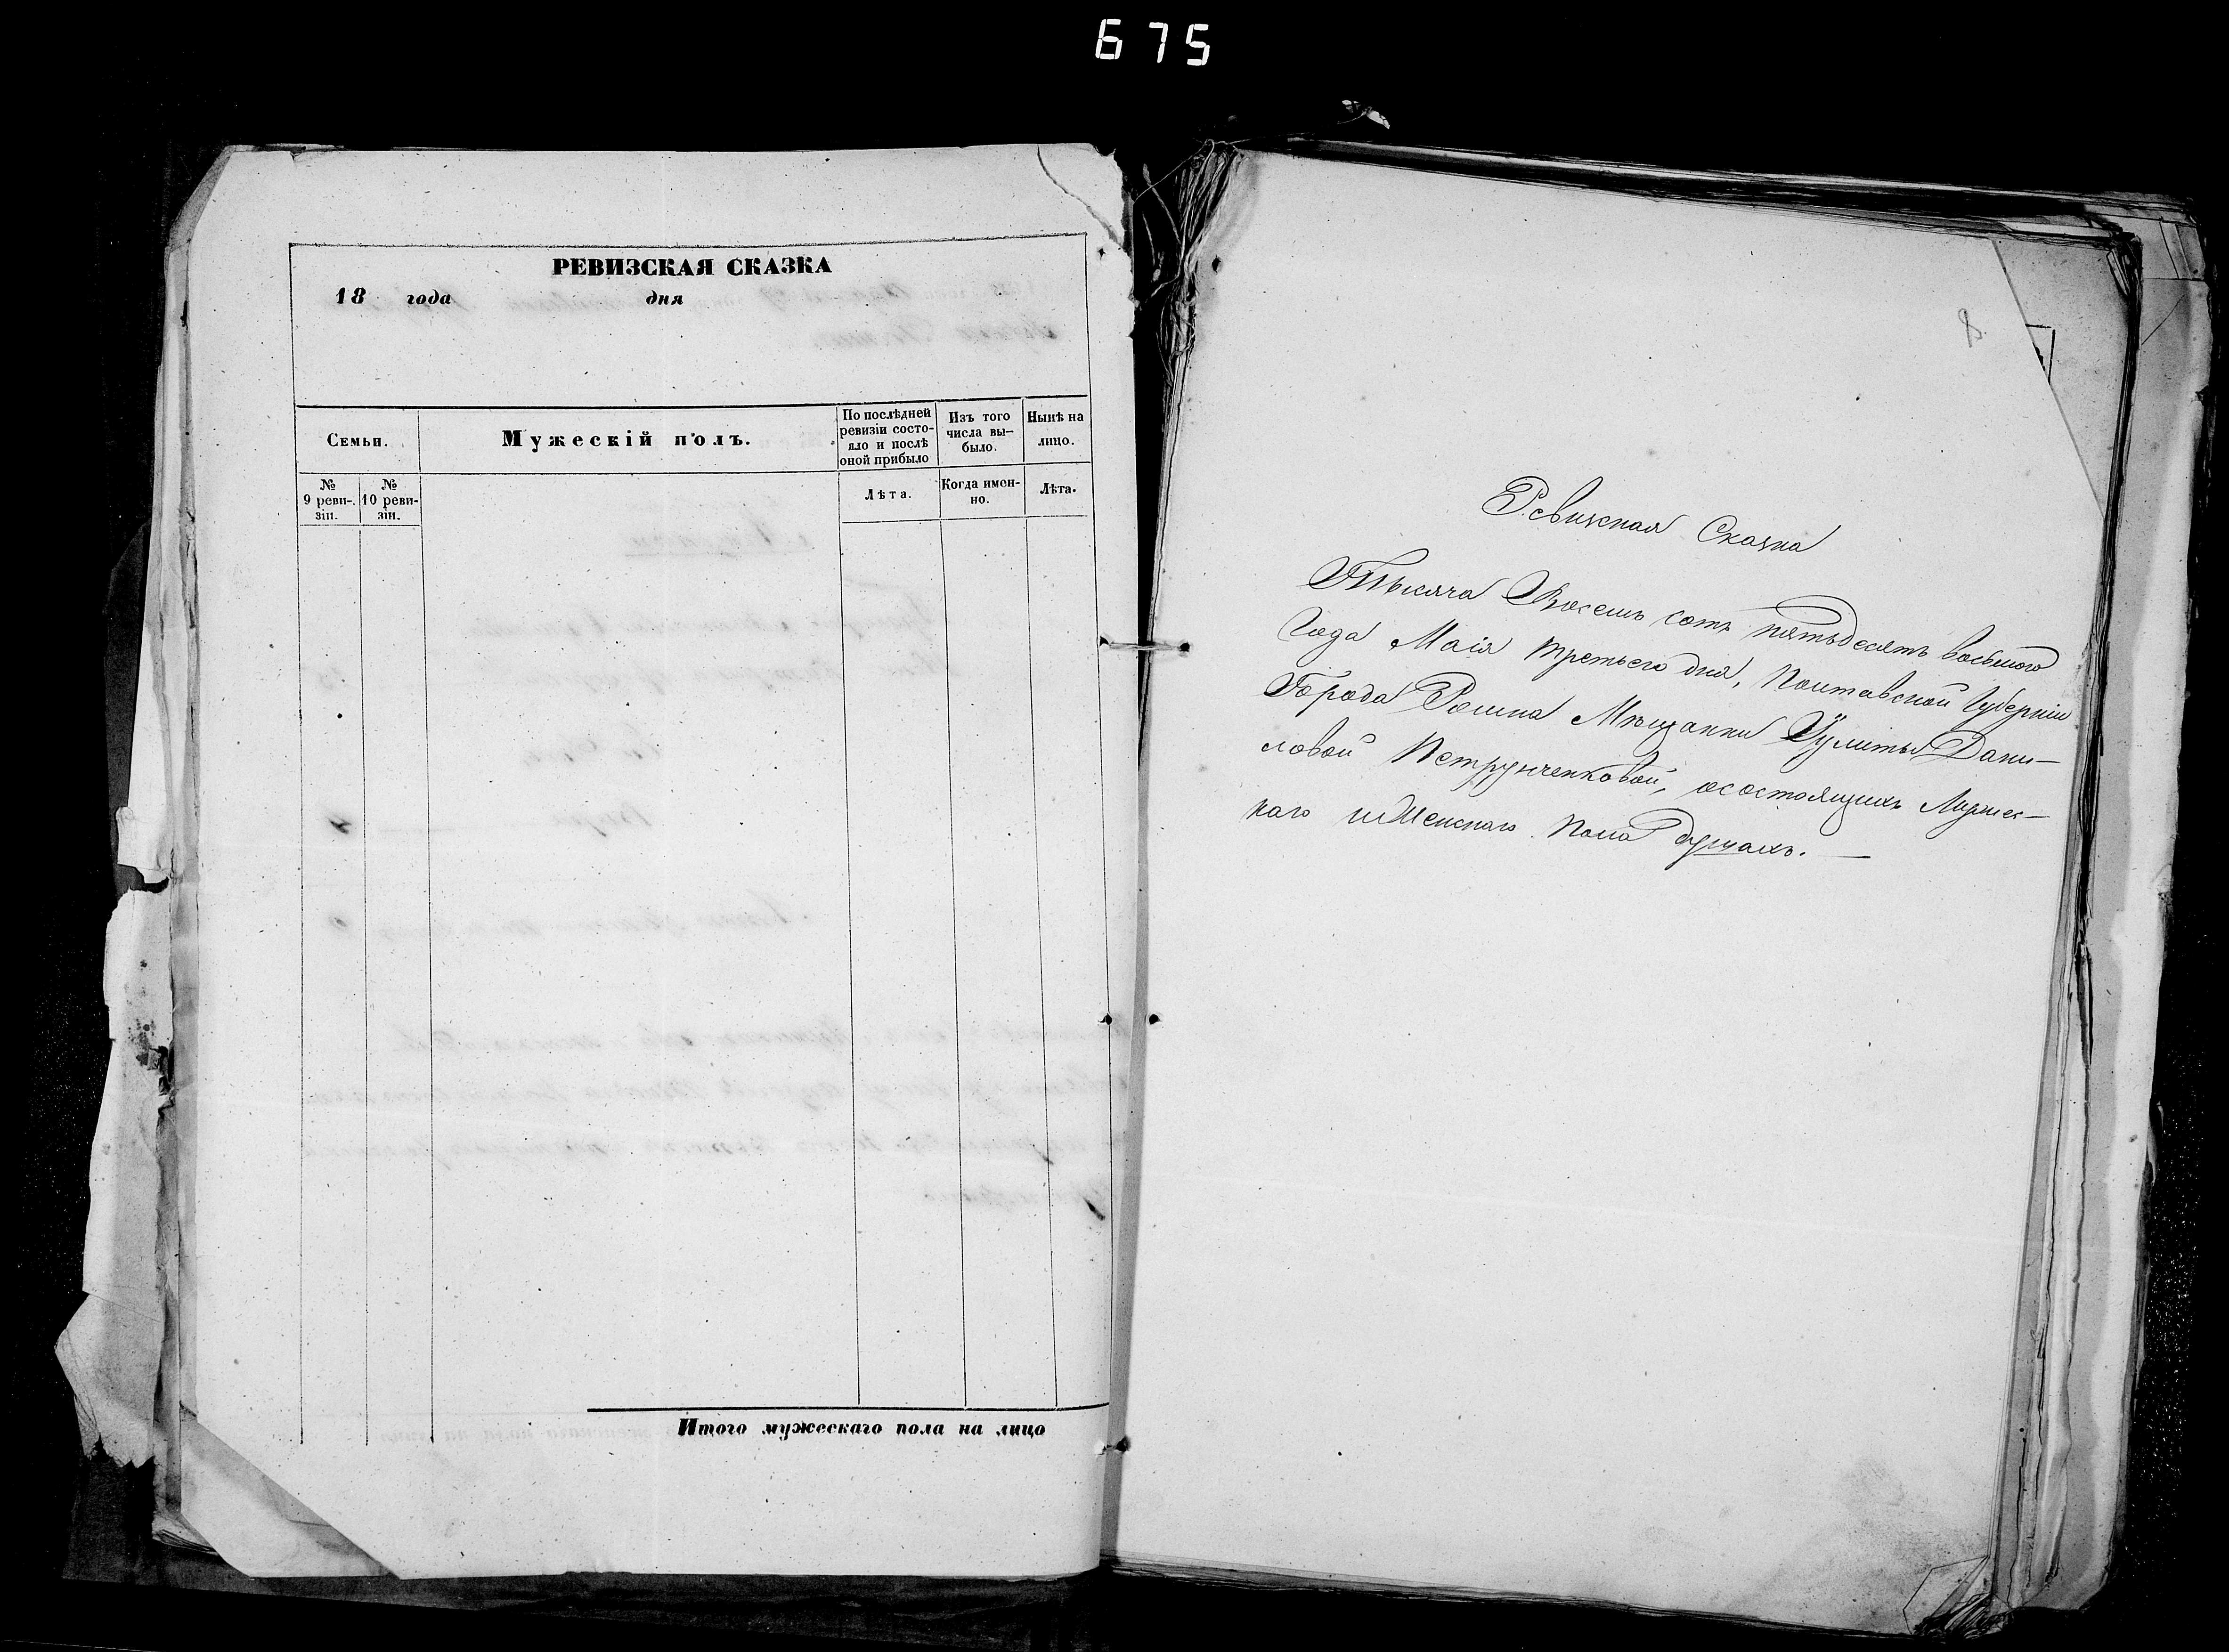 675
РЕВИЗСКАЯ СКАЗКА
18 года дня
Семьи.
Мужескій полъ.
По послѣдней ревизіи состо-
яло и послѣ оной прибыло
Изъ того числа вы-
было.
Нынѣ на лицо.
№ 9 реви-
зіи.
№ 10 реви-
зіи.
Лѣта.
Когда имен-
но.
Лѣта.
Итого мужескаго пола на лицо
8
Ревизская Сказка
Тысяча Восемь сотъ пятьдесятъ восьмого
Года Маія третьего дня, Полтавской Губерніи
Города Ромна Мѣщанки Улиты Дани-
ловой Петрунченковой, о состоящихъ Мужес-
каго и Женскаго Пола душахъ.